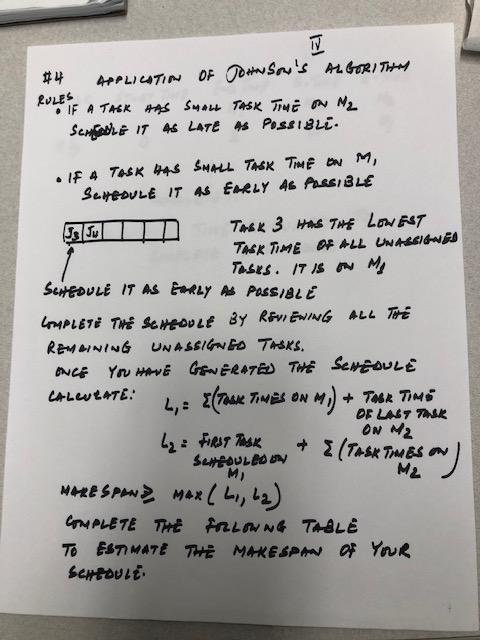 IV
#4 APPLICATION OF JOHNSON'S ALGORITHM
RULES
• IF A TASK HAS SMALL TASK TIME ON M2
SCHEDULE IT AS LATE AS POSSIBLE.
• IF A TASK HAS SMALL TASK TIME ON M1
SCHEDULE IT AS EARLY AS POSSIBLE
J3 J4
TASK 3 HAS THE LOWEST
TASK TIME OF ALL UNASSIGNED
TASKS. IT IS ON M1
SCHEDULE IT AS EARLY AS POSSIBLE
COMPLETE THE SCHEDULE BY REVIEWING ALL THE
REMAINING UNASSIGNED TASKS.
ONCE YOU HAVE GENERATED THE SCHEDULE
CALCULATE:
L1 = Σ(TASK TIMES ON M1) + TASK TIME
OF LAST TASK
ON M2
L2 = FIRST TASK
SCHEDULED ON
M1
+ Σ(TASK TIMES ON
M2)
MAKESPAN ≥ MAX(L1, L2)
COMPLETE THE FOLLOWING TABLE
TO ESTIMATE THE MAKESPAN OF YOUR
SCHEDULE.